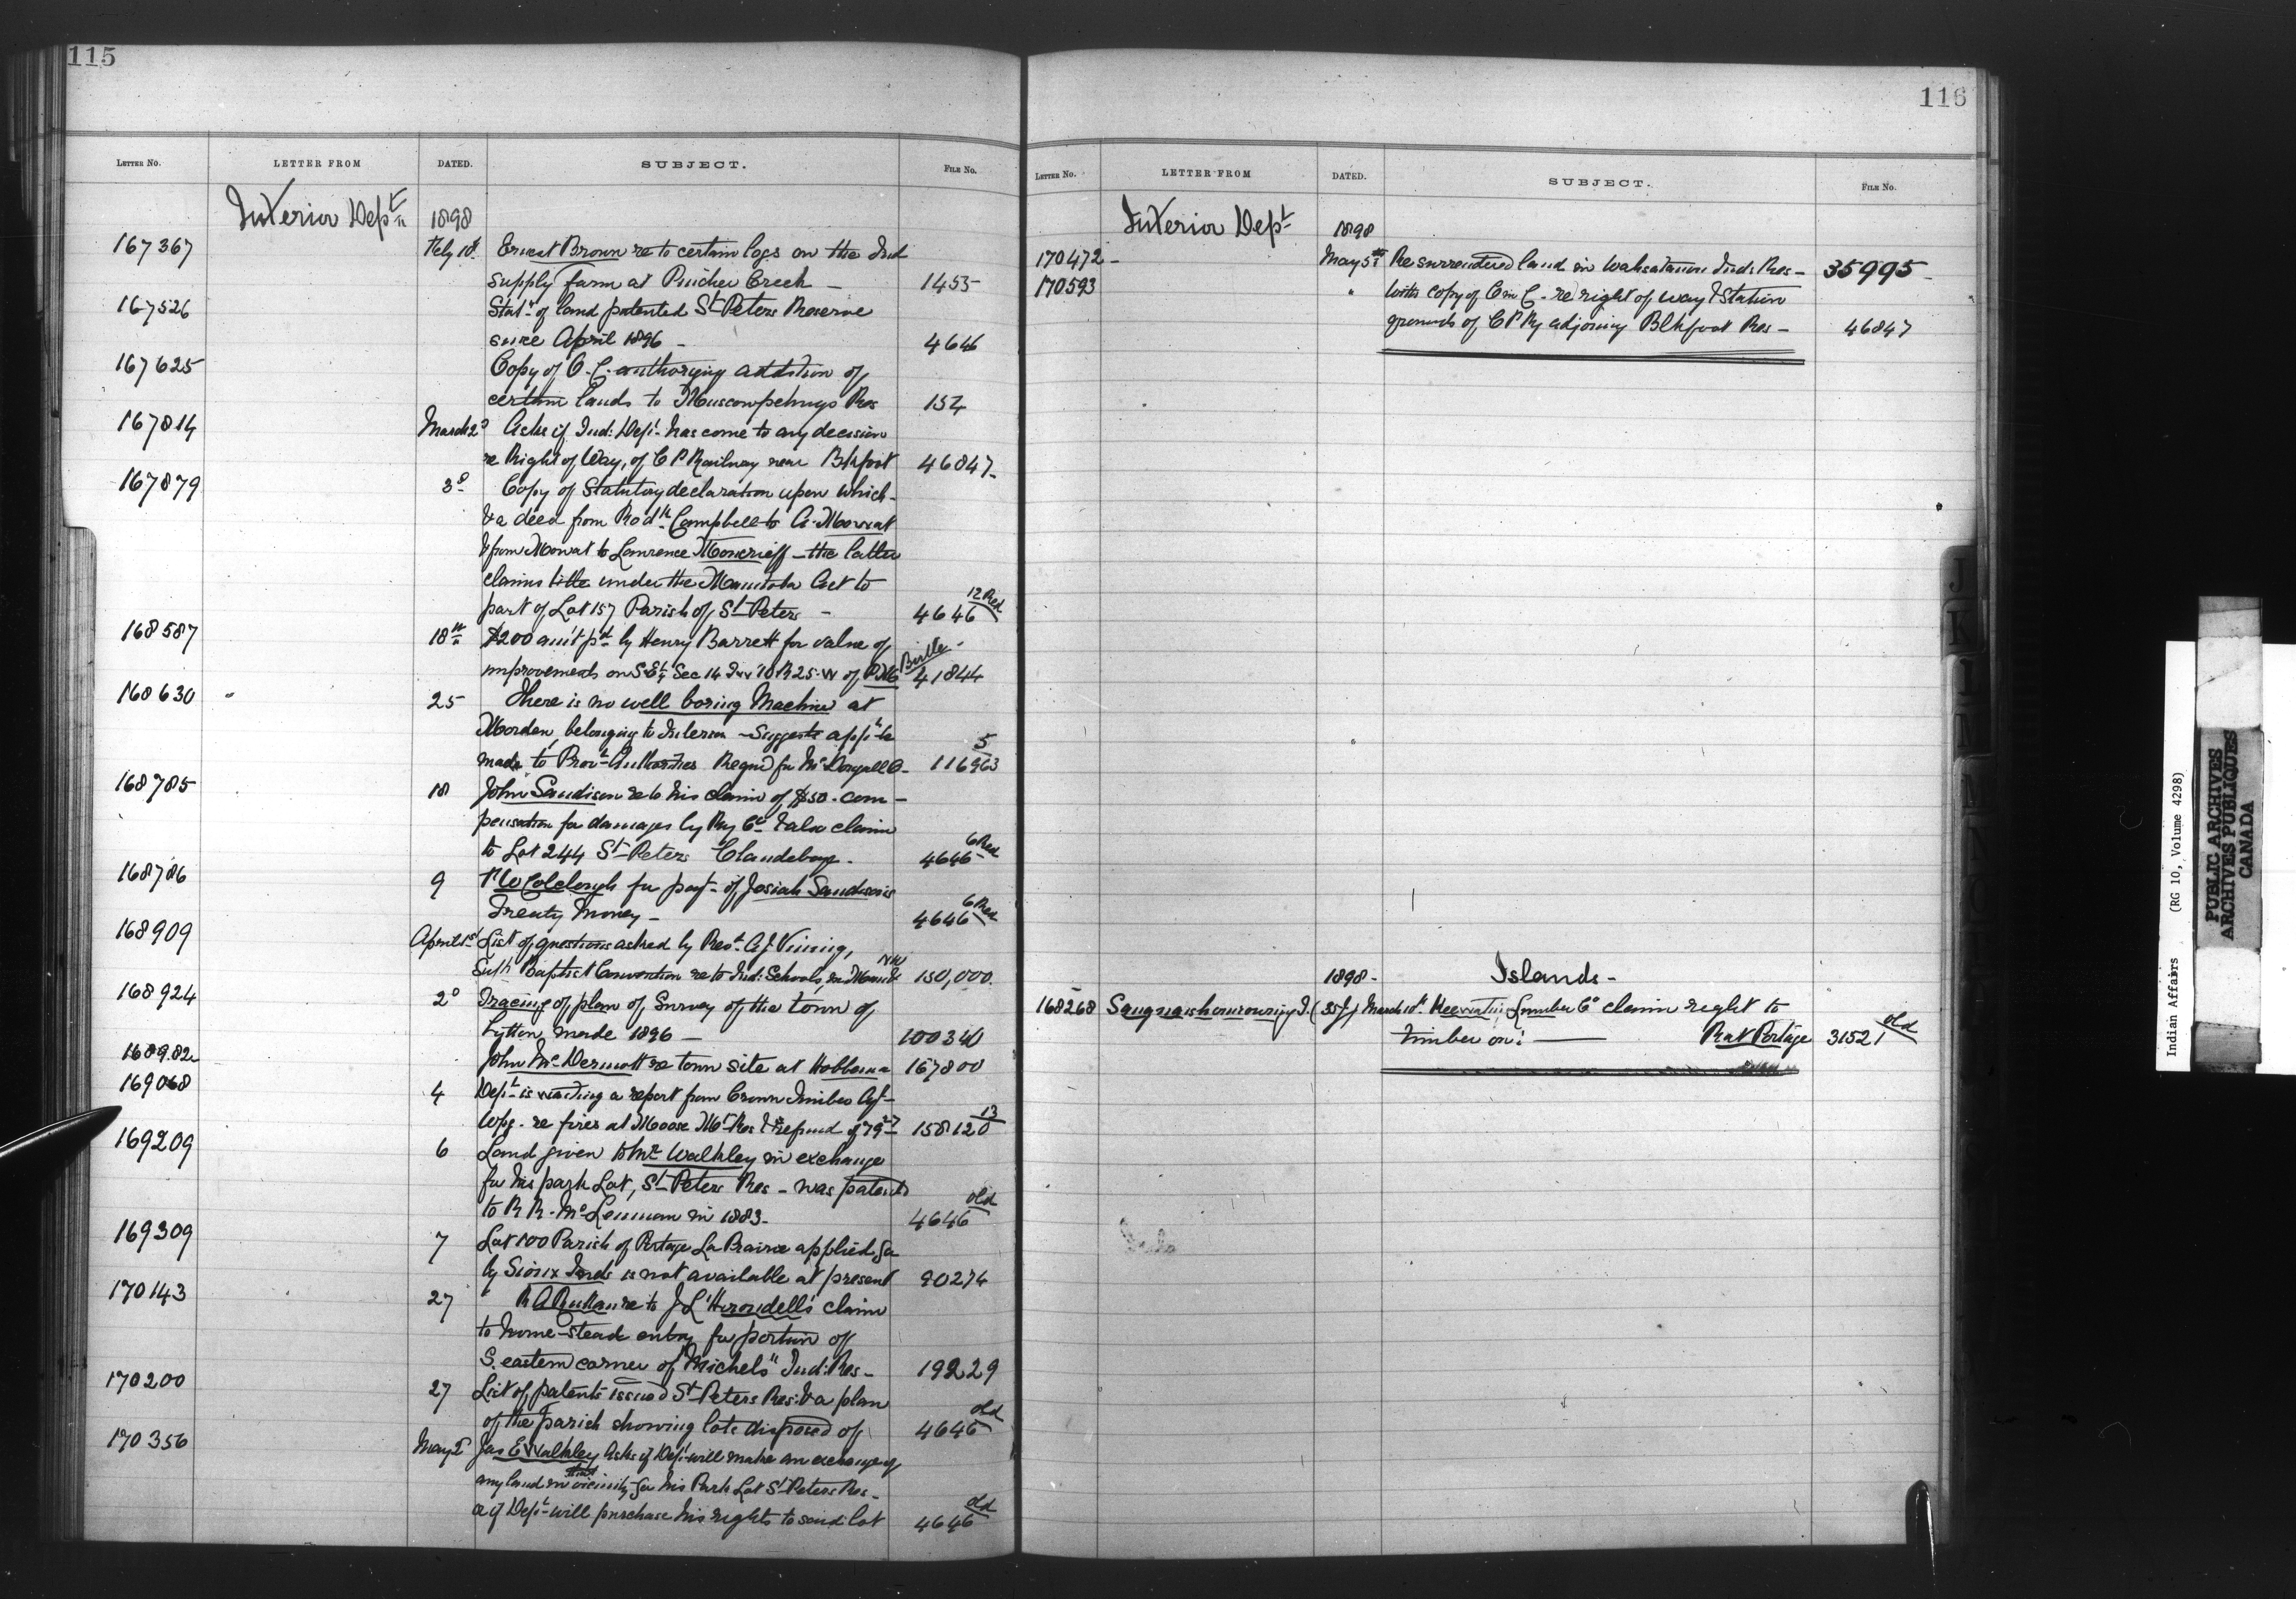 115
LETTER NO. LETTER FROM DATED. SUBJECT. FILE NO.
Interior Dept 1898
167367 Feby 10th Ernest Brown re to certain logs on the Ind
supply farm at Pincher Creek — 1455
167526 Stat- of land patented St Peters Reserve
since April 1896 — 4646
167625 Copy of O.C. authorizing addition of
certain lands to Muscowpetungs Res 154
167814 March 2d Asks if Ind: Dept has come to any decision
re Right of Way, of C P Railway near Blkfoot 46847-
167879 3d Copy of Statutory declaration upon which-
& a deed from Rodk Campbell to A. Mowat
& from Mowat to Lawrence Moncrieff - the latter
claims title under the Manitoba Act to
part of Lot 157 Parish of St Peters - 4646 12 Red
168587 18th $200 am't pd by Henry Barrett for value of
improvements on S.E¼ Sec 14 Tw 10 R 25. W of PM Birtle 41844
168630 " 25 There is no well boring Machine at
Morden, belonging to Interior - Suggests appn be
made to Provl Authorities Reqd for McDougall O- 116963 5
168785 18 John Sandison re to his claim of $50. com-
pensation for damages by Ry Co & also claim
to Lot 244 St Peters Clandeboye. 4646 6 Red
168786 9 R W Colclough for payt of Josiah Sandison's
Treaty Money - 4646 6 Red
168909 April 1st List of questions asked by Revd. A J Vining,
Supt Baptist Convention re to Ind: Schools, in Man & NW 150,000.
168924 2d Tracing of plan of Survey of the town of
Lytton, made 1896 — 100340
168982 John McDermott re town site at Hobbema 167800
169068 4 Dept is waiting a report from Crown Timber Agt-
Wpg. re fires at Moose Mt Res & refund of 79 158120 13
169209 6 Land given to Mr Walkley in exchange
for his park Lot, St Peters Res - was patented
to R R. McLennan in 1883- 4646 old
169309 7 Lot 100 Parish of Portage La Prairie applied for
by Sioux Inds is not available at present 90274
170143 27 " R A Ruttan re to J L'Hirondell's claim
to home-stead entry for portion of
S. eastern corner of "Michels" Ind: Res- 19229
170200 27 List of patents issued St Peters Res. & a plan
of the Parish showing lots disposed of 4646 old
170356 May 2d Jas E Walkley Asks if Dept will make an exchange of
any land in that vicinity for his Park Lot St Peters Res-
or if Dept will purchase his rights to said lot 4646 old
116
LETTER NO. LETTER FROM DATED. SUBJECT. FILE NO.
Interior Dept 1898
170472- May 5th Re surrendered land in Wahsatanow Inds Res- 35995-
170593 " With copy of O in C - re right of way & Station
grounds of C P Ry adjoining Blkfoot Res- 46847
1898- Islands-
168268 I. (35f) March 10th Keewatin Lumber Co claim right to
timber on: — Rat Portage 31521 old
J
K
L
M
Indian Affairs (RG 10, Volume 4298)
PUBLIC ARCHIVES
ARCHIVES PUBLIQUES
CANADA